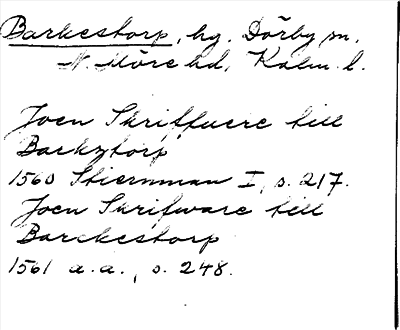 Barkestorp, hg. Dörby sn.
N. Möre hd, Kalm. l.
Joen Skriffuere till
Barkztorp
1560 Stiernman I, s. 217.
Joen Skrifware till
Barckestorp
1561 a.a., s. 248.